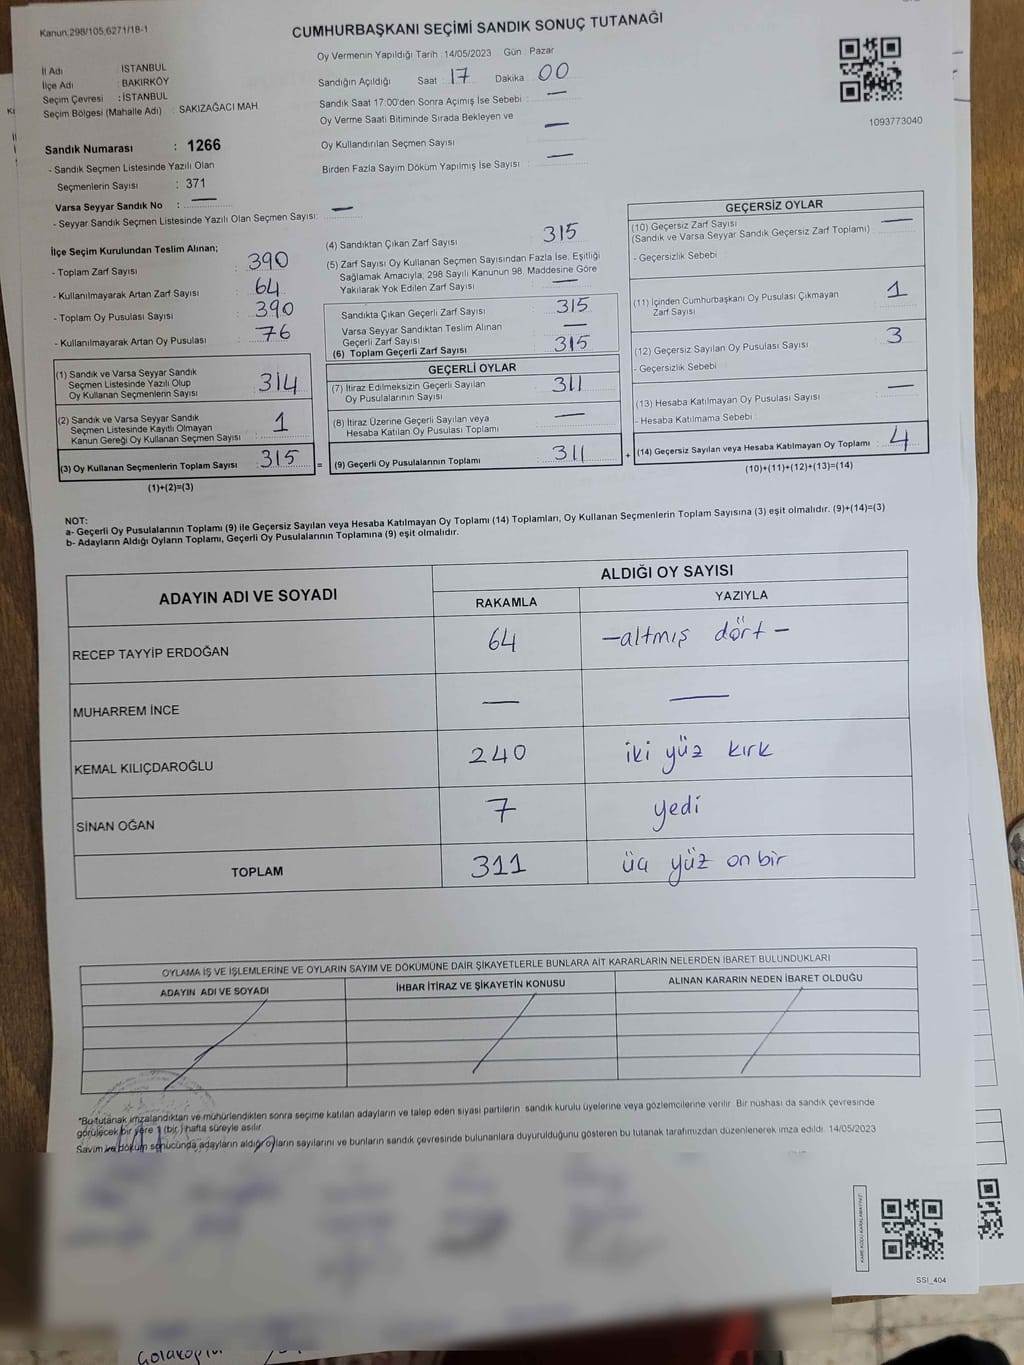 Kanun,298/105,6271/18-1
CUMHURBAŞKANI SEÇİMİ SANDIK SONUÇ TUTANAĞI
İl Adı : İSTANBUL
İlçe Adı : BAKIRKÖY
Seçim Çevresi : İSTANBUL
Seçim Bölgesi (Mahalle Adı) : SAKIZAĞACI MAH
Oy Vermenin Yapıldığı Tarih : 14/05/2023 Gün : Pazar
Sandığın Açıldığı Saat : 17 Dakika : 00
Sandık Saat 17:00'den Sonra Açımış İse Sebebi : —
Oy Verme Saati Bitiminde Sırada Bekleyen ve
Oy Kullandırılan Seçmen Sayısı —
Birden Fazla Sayım Döküm Yapılmış İse Sayısı : —
1093773040
Sandık Numarası : 1266
- Sandık Seçmen Listesinde Yazılı Olan
Seçmenlerin Sayısı : 371
Varsa Seyyar Sandık No : —
- Seyyar Sandık Seçmen Listesinde Yazılı Olan Seçmen Sayısı: —
İlçe Seçim Kurulundan Teslim Alınan;
- Toplam Zarf Sayısı : 390
- Kullanılmayarak Artan Zarf Sayısı : 64
- Toplam Oy Pusulası Sayısı : 390
- Kullanılmayarak Artan Oy Pusulası : 76
(1) Sandık ve Varsa Seyyar Sandık
Seçmen Listesinde Yazılı Olup
Oy Kullanan Seçmenlerin Sayısı : 314
(2) Sandık ve Varsa Seyyar Sandık
Seçmen Listesinde Kayıtlı Olmayan
Kanun Gereği Oy Kullanan Seçmen Sayısı : 1
(3) Oy Kullanan Seçmenlerin Toplam Sayısı : 315
(1)+(2)=(3)
(4) Sandıktan Çıkan Zarf Sayısı : 315
(5) Zarf Sayısı Oy Kullanan Seçmen Sayısından Fazla İse, Eşitliği
Sağlamak Amacıyla, 298 Sayılı Kanunun 98. Maddesine Göre
Yakılarak Yok Edilen Zarf Sayısı : —
Sandıkta Çıkan Geçerli Zarf Sayısı : 315
Varsa Seyyar Sandıktan Teslim Alınan
Geçerli Zarf Sayısı : —
(6) Toplam Geçerli Zarf Sayısı : 315
GEÇERLİ OYLAR
(7) İtiraz Edilmeksizin Geçerli Sayılan
Oy Pusulalarının Sayısı : 311
(8) İtiraz Üzerine Geçerli Sayılan veya
Hesaba Katılan Oy Pusulası Toplamı : —
= (9) Geçerli Oy Pusulalarının Toplamı : 311
GEÇERSİZ OYLAR
(10) Geçersiz Zarf Sayısı : —
(Sandık ve Varsa Seyyar Sandık Geçersiz Zarf Toplamı)
- Geçersizlik Sebebi
(11) İçinden Cumhurbaşkanı Oy Pusulası Çıkmayan
Zarf Sayısı : 1
(12) Geçersiz Sayılan Oy Pusulası Sayısı : 3
- Geçersizlik Sebebi
(13) Hesaba Katılmayan Oy Pusulası Sayısı : —
- Hesaba Katılmama Sebebi :
+ (14) Geçersiz Sayılan veya Hesaba Katılmayan Oy Toplamı : 4
(10)+(11)+(12)+(13)=(14)
NOT:
a- Geçerli Oy Pusulalarının Toplamı (9) ile Geçersiz Sayılan veya Hesaba Katılmayan Oy Toplamı (14) Toplamları, Oy Kullanan Seçmenlerin Toplam Sayısına (3) eşit olmalıdır. (9)+(14)=(3)
b- Adayların Aldığı Oyların Toplamı, Geçerli Oy Pusulalarının Toplamına (9) eşit olmalıdır.
ADAYIN ADI VE SOYADI
ALDIĞI OY SAYISI
RAKAMLA YAZIYLA
RECEP TAYYİP ERDOĞAN 64 —altmış dört—
MUHARREM İNCE — —
KEMAL KILIÇDAROĞLU 240 iki yüz kırk
SİNAN OĞAN 7 yedi
TOPLAM 311 üç yüz on bir
OYLAMA İŞ VE İŞLEMLERİNE VE OYLARIN SAYIM VE DÖKÜMÜNE DAİR ŞİKAYETLERLE BUNLARA AİT KARARLARIN NELERDEN İBARET BULUNDUKLARI
ADAYIN ADI VE SOYADI İHBAR İTİRAZ VE ŞİKAYETİN KONUSU ALINAN KARARIN NEDEN İBARET OLDUĞU
*Bu tutanak imzalandıktan ve mühürlendikten sonra seçime katılan adayların ve talep eden siyasi partilerin sandık kurulu üyelerine veya gözlemcilerine verilir. Bir nüshası da sandık çevresinde
görülecek bir yere 1 (bir) hafta süreyle asılır.
Sayım ve döküm sonucunda adayların aldığı oyların sayılarını ve bunların sandık çevresinde bulunanlara duyurulduğunu gösteren bu tutanak tarafımızdan düzenlenerek imza edildi. 14/05/2023
KARE KODU KARALAMAYINIZ!
SSI_404